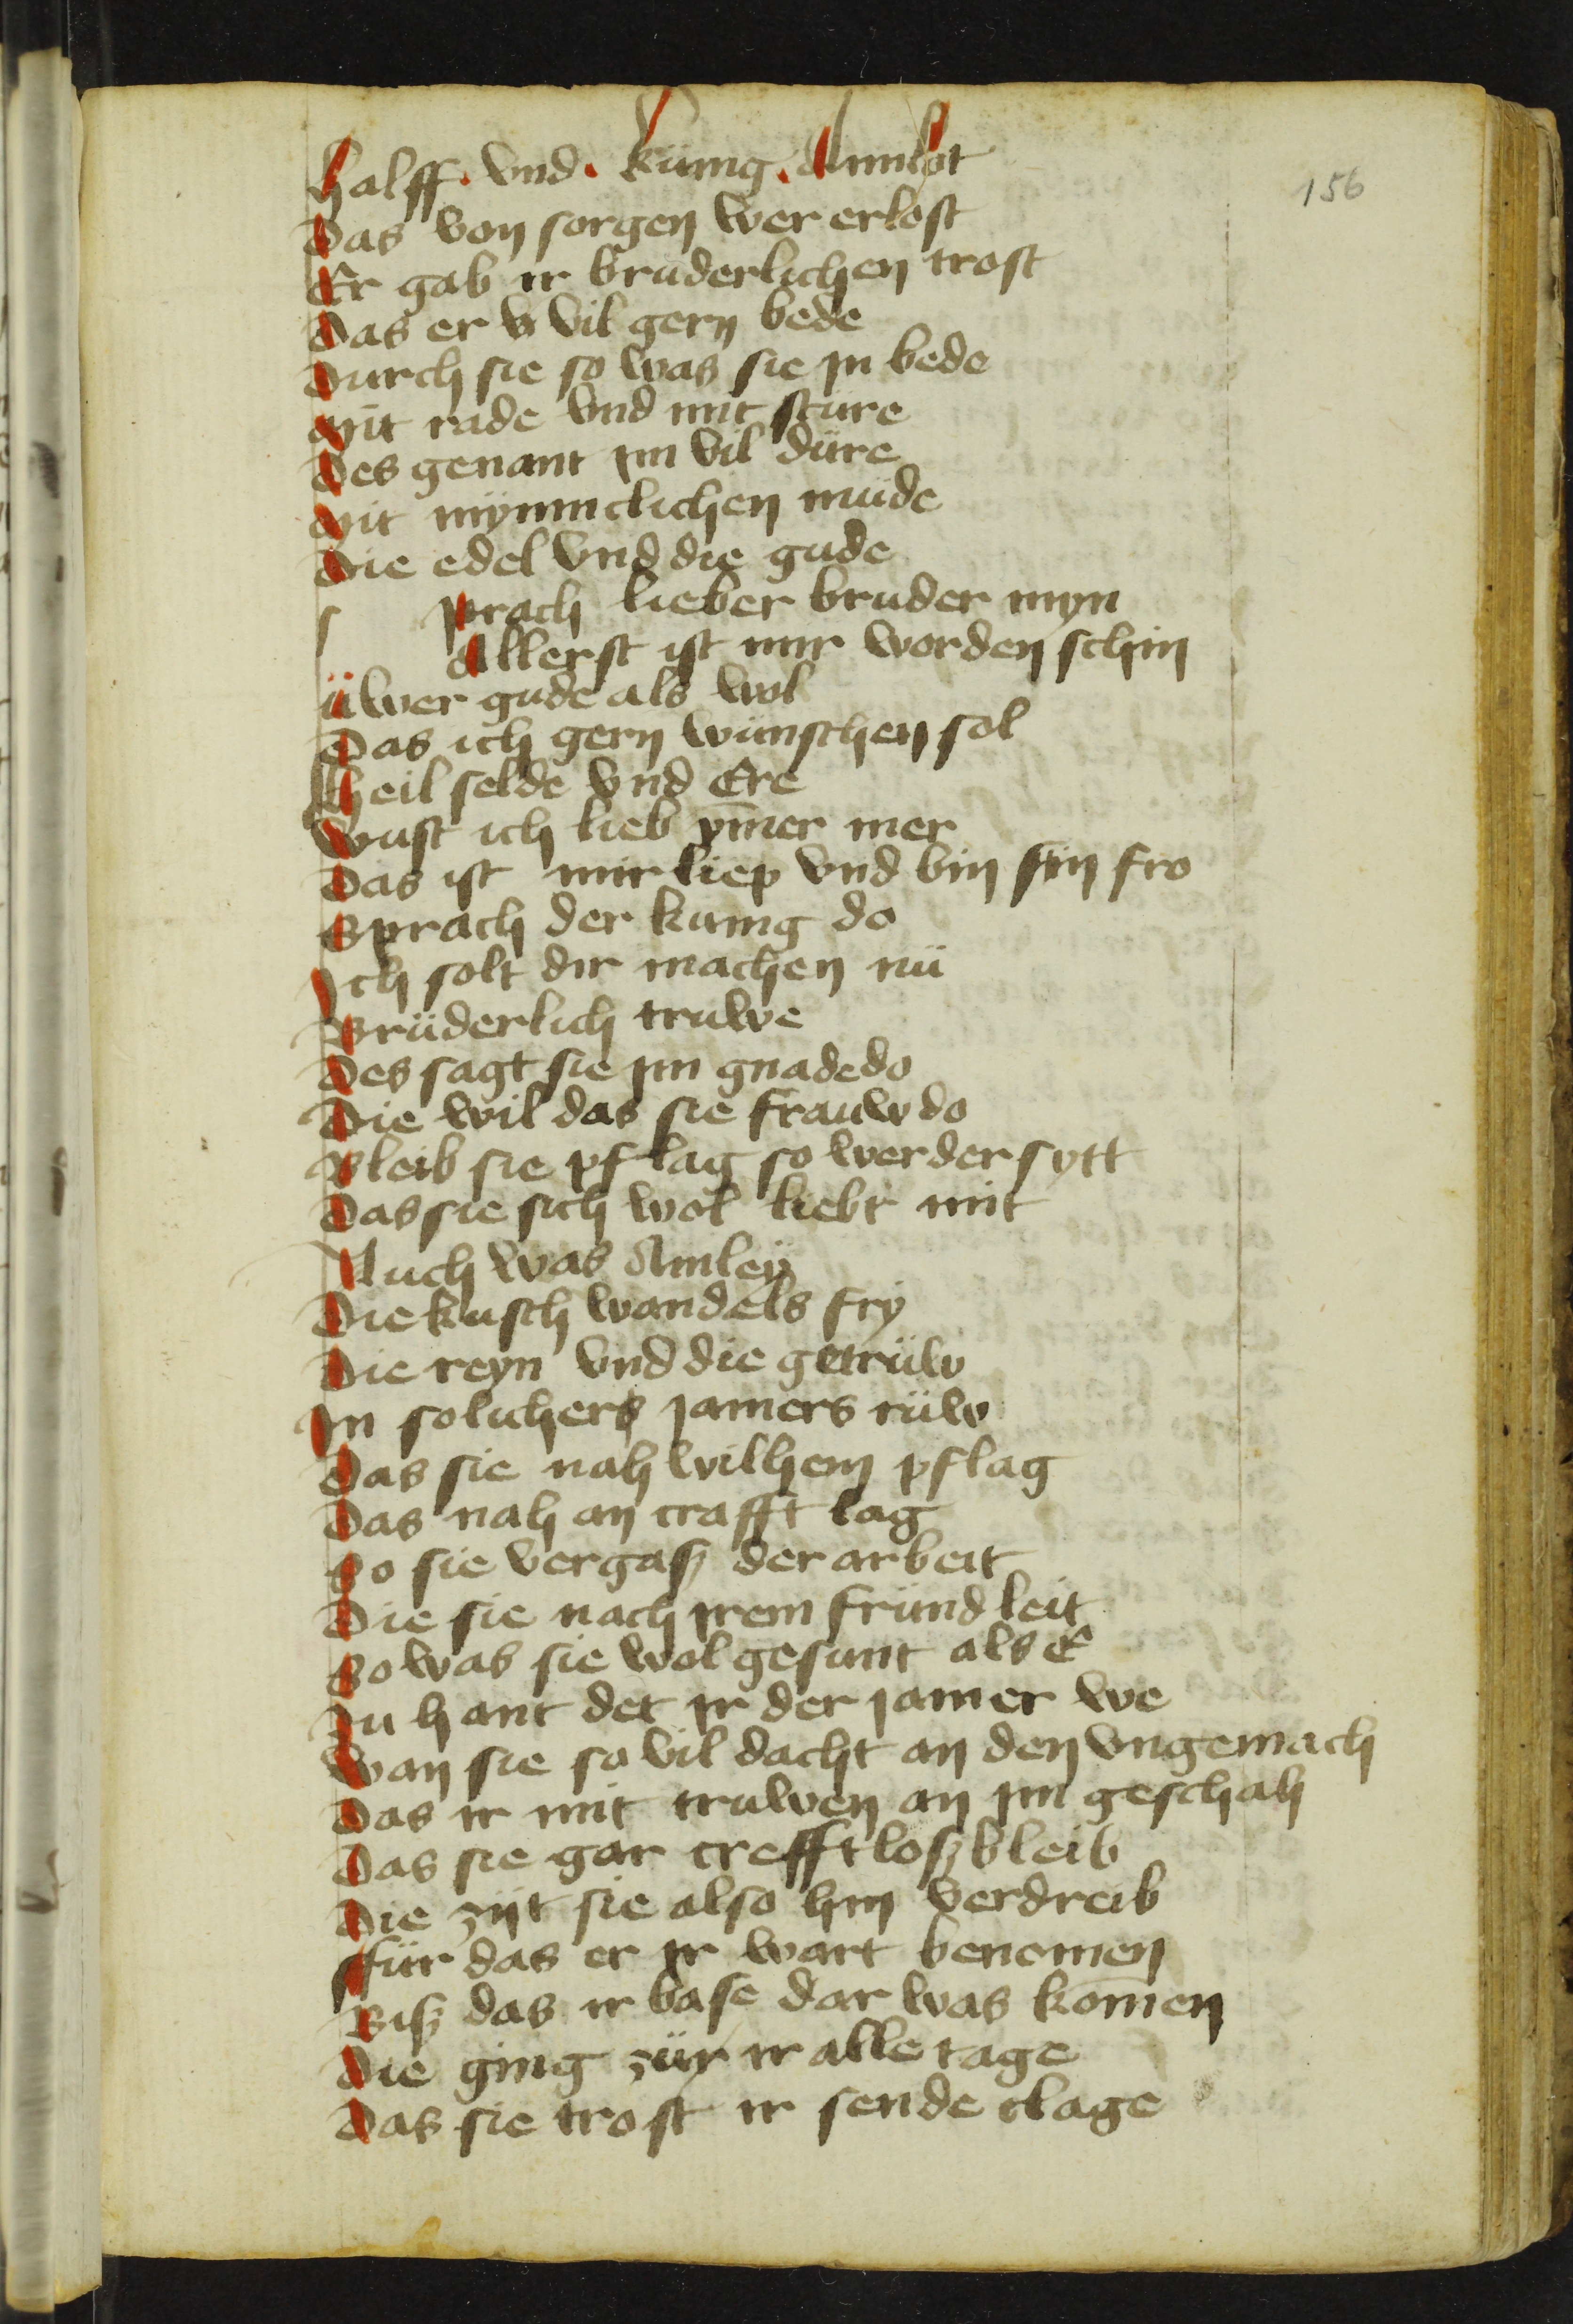 156
Halff. vnd. kunig. Amelot
Das von sorgen wer erlost
Er gab ir bruderlichen trost
Das er vil gern bede
Durch sie so was sie jn bede
Mit rade vnd mit sture
Des genant jm vil düre
Mit mynnclichen müde
Die edel vnd die gude
s prach lieber bruder myn
Allerst ist mir worden schin
üwer gude als wol
Das ich gern wünschen sol
Heil selde vnd Ere
Wust ich lieb ym̄er mer
Das ist mir liep vnd bin sin fro
Sprach der kunig do
Ich solt dir machen nü
Brüderlich truwe
Des sagt sie jm gnade do
Die wil das sie frauw do
Bleib sie pflag so werder sytt
Das sie sich wol liebt mit
Auch was Amley
Die kusch wandels fry
Die reyn vnd die getrüw
In solichers jamers rüw
Das sie nah wilhem pflag
Das nah an crafft lag
So sie vergaß der arbeit
Die sie nach jrem fründ leit
So was sie wol gesunt als E
Zu hant det jr der jamer we
Wan sie so vil dacht an den vngemach
Das ir mit truwen an jm geschah
Das sie gar crefftloß bleib
Die zijt sie also hin verdreib
Für das er jr wart benomen
Biß das ir base dar was kom̄en
Die ging zür ir alle tage
Das sie trost ir sende clage